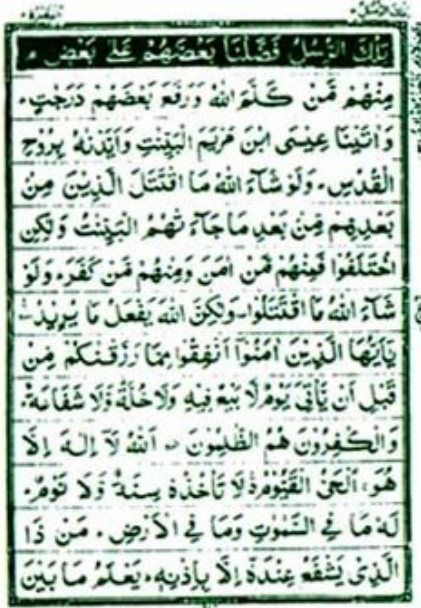 تِلْكَ الرُّسُلُ البقرة ٢
تِلْكَ الرُّسُلُ فَضَّلْنَا بَعْضَهُمْ عَلٰى بَعْضٍ ۘ
مِنْهُمْ مَّنْ كَلَّمَ اللّٰهُ وَرَفَعَ بَعْضَهُمْ دَرَجٰتٍ ؕ
وَاٰتَيْنَا عِيْسَى ابْنَ مَرْيَمَ الْبَيِّنٰتِ وَاَيَّدْنٰهُ بِرُوْحِ
الْقُدُسِ ؕ وَلَوْ شَآءَ اللّٰهُ مَا اقْتَتَلَ الَّذِيْنَ مِنْۢ
بَعْدِهِمْ مِّنْۢ بَعْدِ مَا جَآءَ تْهُمُ الْبَيِّنٰتُ وَلٰكِنِ
اخْتَلَفُوْا فَمِنْهُمْ مَّنْ اٰمَنَ وَمِنْهُمْ مَّنْ كَفَرَ ؕ وَلَوْ
شَآءَ اللّٰهُ مَا اقْتَتَلُوْا ۟ وَلٰكِنَّ اللّٰهَ يَفْعَلُ مَا يُرِيْدُ
يٰۤاَيُّهَا الَّذِيْنَ اٰمَنُوْۤا اَنْفِقُوْا مِمَّا رَزَقْنٰكُمْ مِّنْ
قَبْلِ اَنْ يَّاْتِيَ يَوْمٌ لَّا بَيْعٌ فِيْهِ وَلَا خُلَّةٌ وَّلَا شَفَاعَةٌ ؕ
وَالْكٰفِرُوْنَ هُمُ الظّٰلِمُوْنَ ۝ اَللّٰهُ لَاۤ اِلٰهَ اِلَّا
هُوَ ۚ اَلْحَيُّ الْقَيُّوْمُ ۚ لَا تَاْخُذُهٗ سِنَةٌ وَّلَا نَوْمٌ ؕ
لَهٗ مَا فِي السَّمٰوٰتِ وَمَا فِي الْاَرْضِ ؕ مَنْ ذَا
الَّذِيْ يَشْفَعُ عِنْدَهٗۤ اِلَّا بِاِذْنِهٖ ؕ يَعْلَمُ مَا بَيْنَ